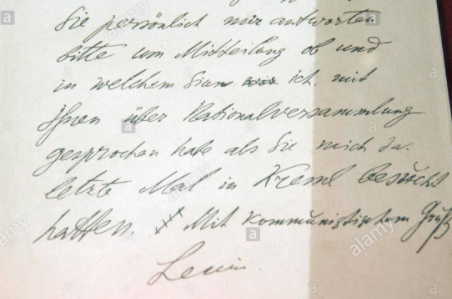 Sie persönlich mir antworten
bitte um Mitteilung ob und
in welchem Sinn ich mit
Ihnen über Nationalversammlung
gesprochen habe als Sie mich das
letzte Mal in Kreml besucht
hatten. Mit kommunistischem Gruß
Lenin
alamy
alamy
alamy
a
a
a
a